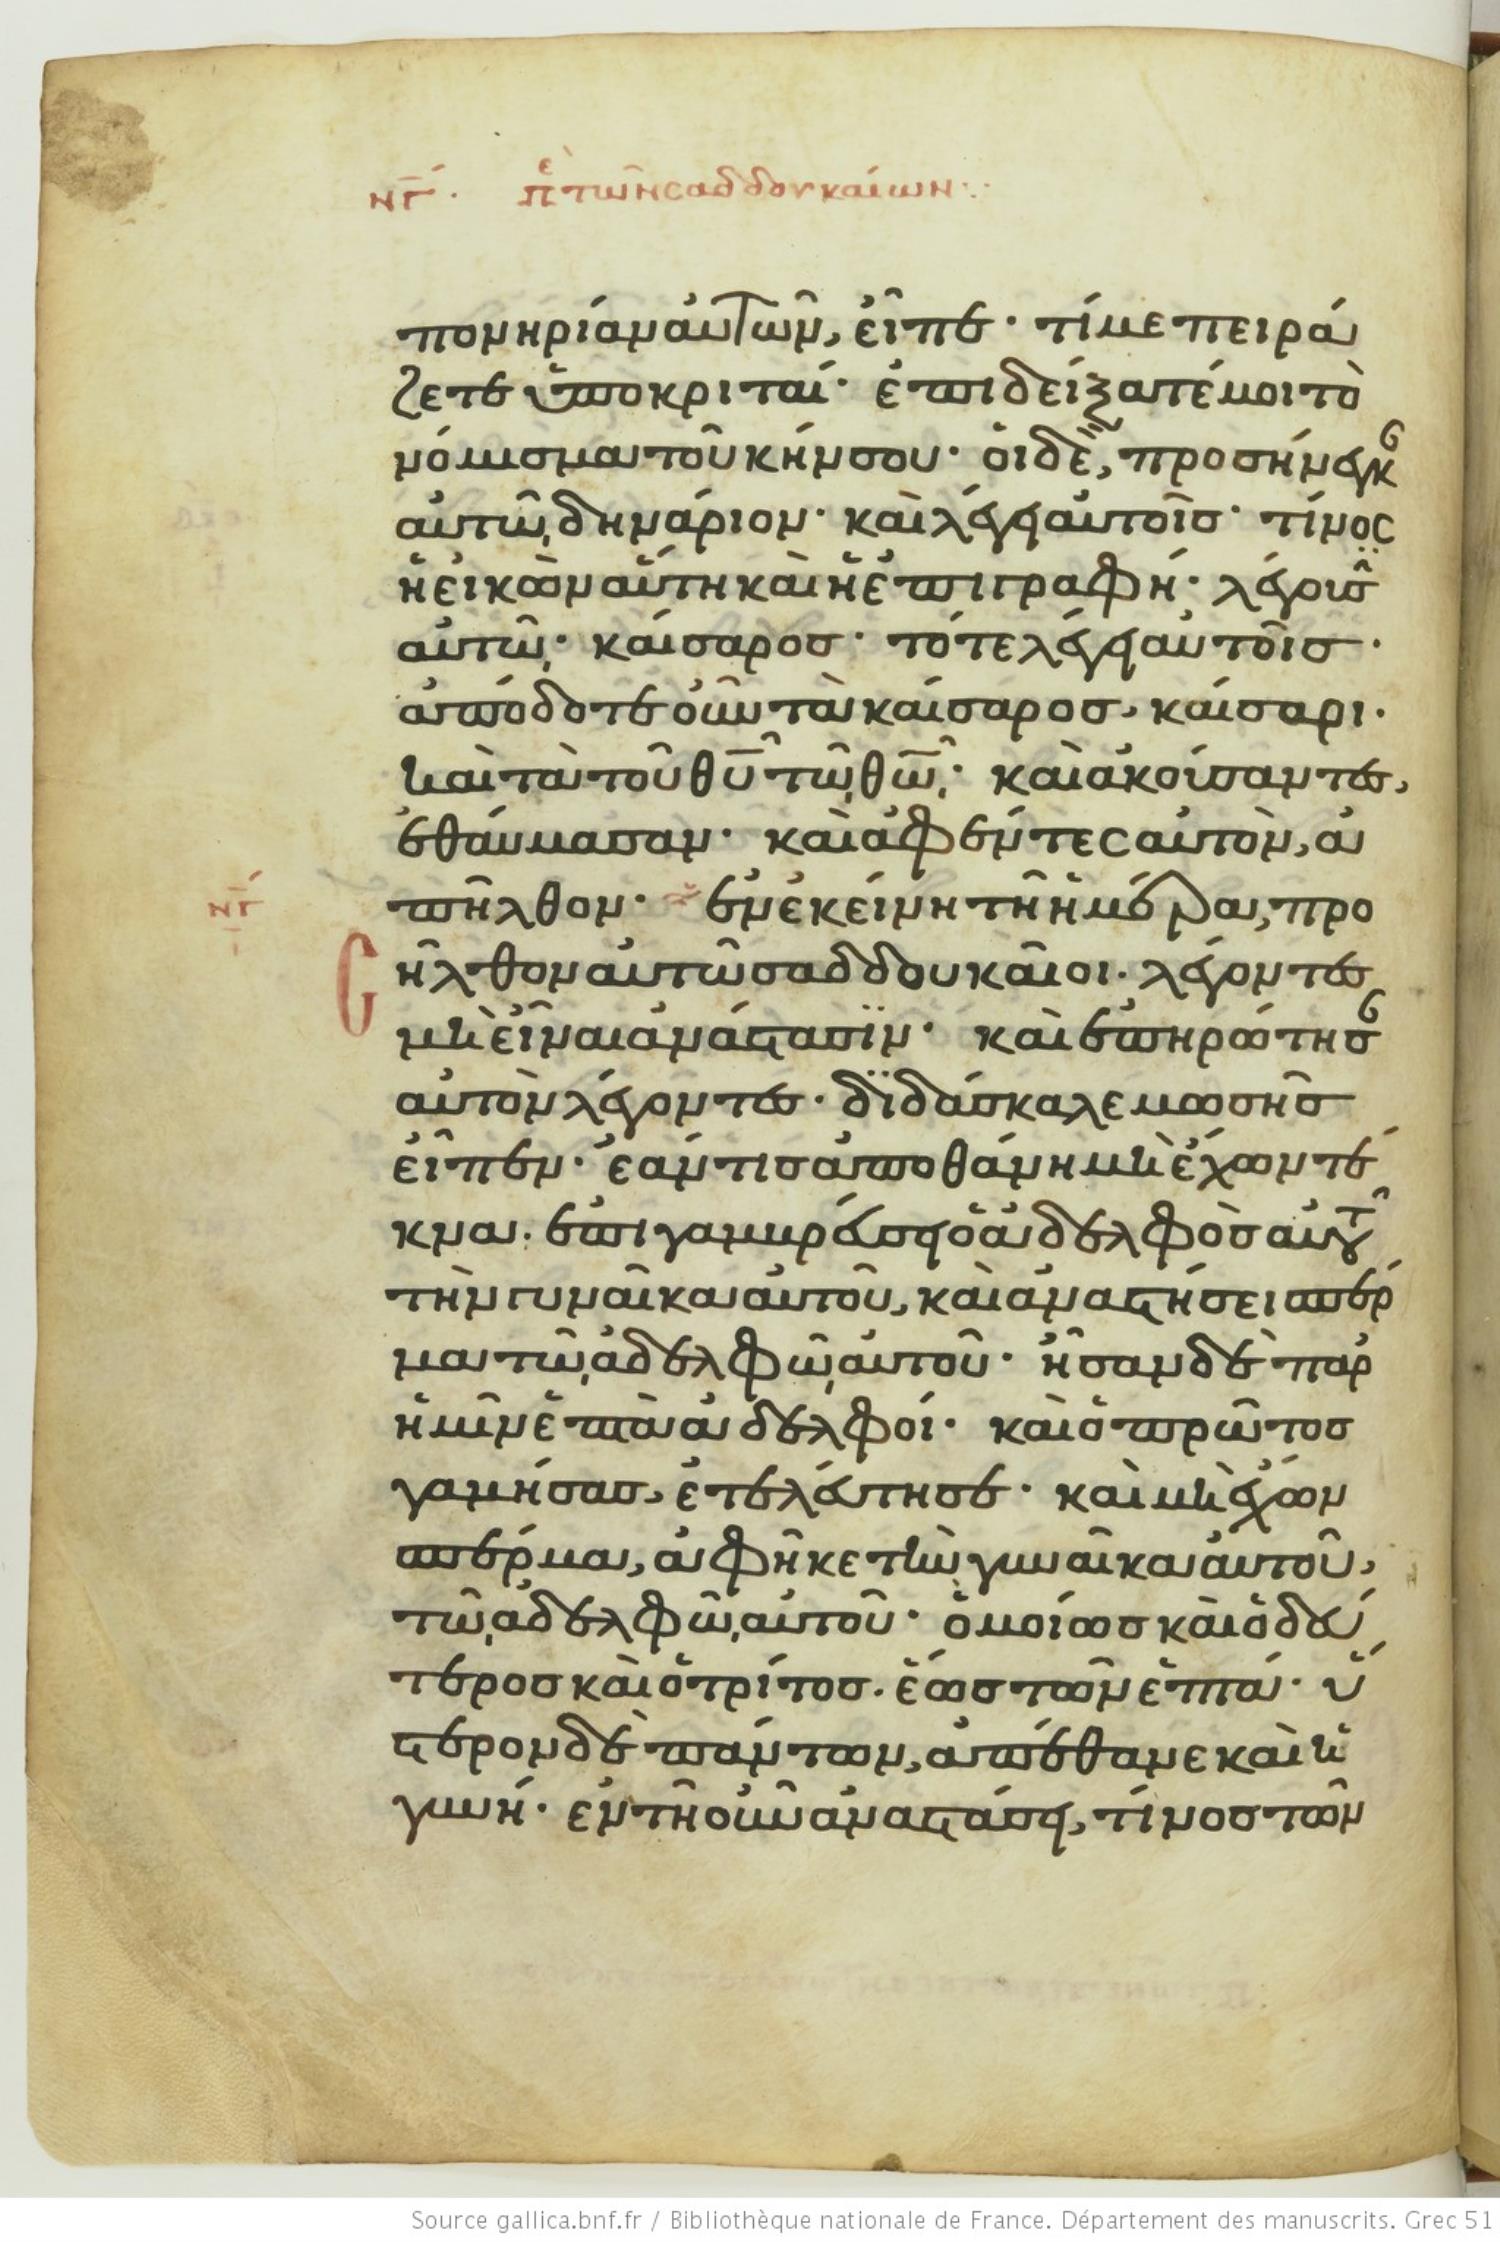 νγ´. πε τῶν σαδδουκαίων·:·
πονηρίαν αὐτῶν, εἶπε· τί με πειρά
ζετε ὑποκριταί· ἐπιδείξατέ μοι τὸ
νόμισμα τοῦ κήνσου· οἱ δὲ, προσήνεγκ
αὐτῶ, δηνάριον· καὶ λέγει αὐτοῖς· τίνος
ἡ εἰκὼν αὕτη καὶ ἡ ἐπιγραφή· λέγουσ
αὐτῶ, καίσαρος· τότε λέγει αὐτοῖς·
ἀπόδοτε οὖν τὰ καίσαρος, καίσαρι·
καὶ τὰ τοῦ θῡ τῶ θω̄· καὶ ἀκούσαντες,
ἐθαύμασαν· καὶ ἀφέντες αὐτὸν, ἀ
πῆλθον· ἐν ἐκείνη τῆ ἡμέρα, προ
νγ
ῆλθον αὐτῶ σαδδουκαῖοι· λέγοντες
μὴ εἶναι ἀνάστασϊν· καὶ ἐπηρώτησ
αὐτὸν λέγοντες· δϊδάσκαλε μωσῆς
εἶπεν· ἐάν τις ἀποθάνη μὴ ἔχων τέ
κνα· ἐπιγαμβρεύσει ὁ ἀδελφὸς αὐτοῦ
τὴν γυναῖκα αὐτοῦ, καὶ ἀναστήσει σπέρ
μα τῶ, ἀδελφῶ, αὐτοῦ· ἦσαν δὲ παρ
ἡμῖν ἑπτὰ ἀδελφοί· καὶ ὁ πρῶτος
γαμήσας, ἐτελεύτησε· καὶ μὴ ἔχων
σπέρμα, ἀφῆκε τὴν γυναῖκα αὐτοῦ,
τῶ, ἀδελφῶ, αὐτοῦ· ὁμοίως καὶ ὁ δεύ
τερος καὶ ὁ τρίτος· ἕως τῶν ἑπτά· ὕ
στερον δὲ πάντων, ἀπέθανε καὶ ἡ
γυνή· ἐν τῆ οὖν ἀναστάσει, τίνος τῶν
Source gallica.bnf.fr / Bibliothèque nationale de France. Département des manuscrits. Grec 51